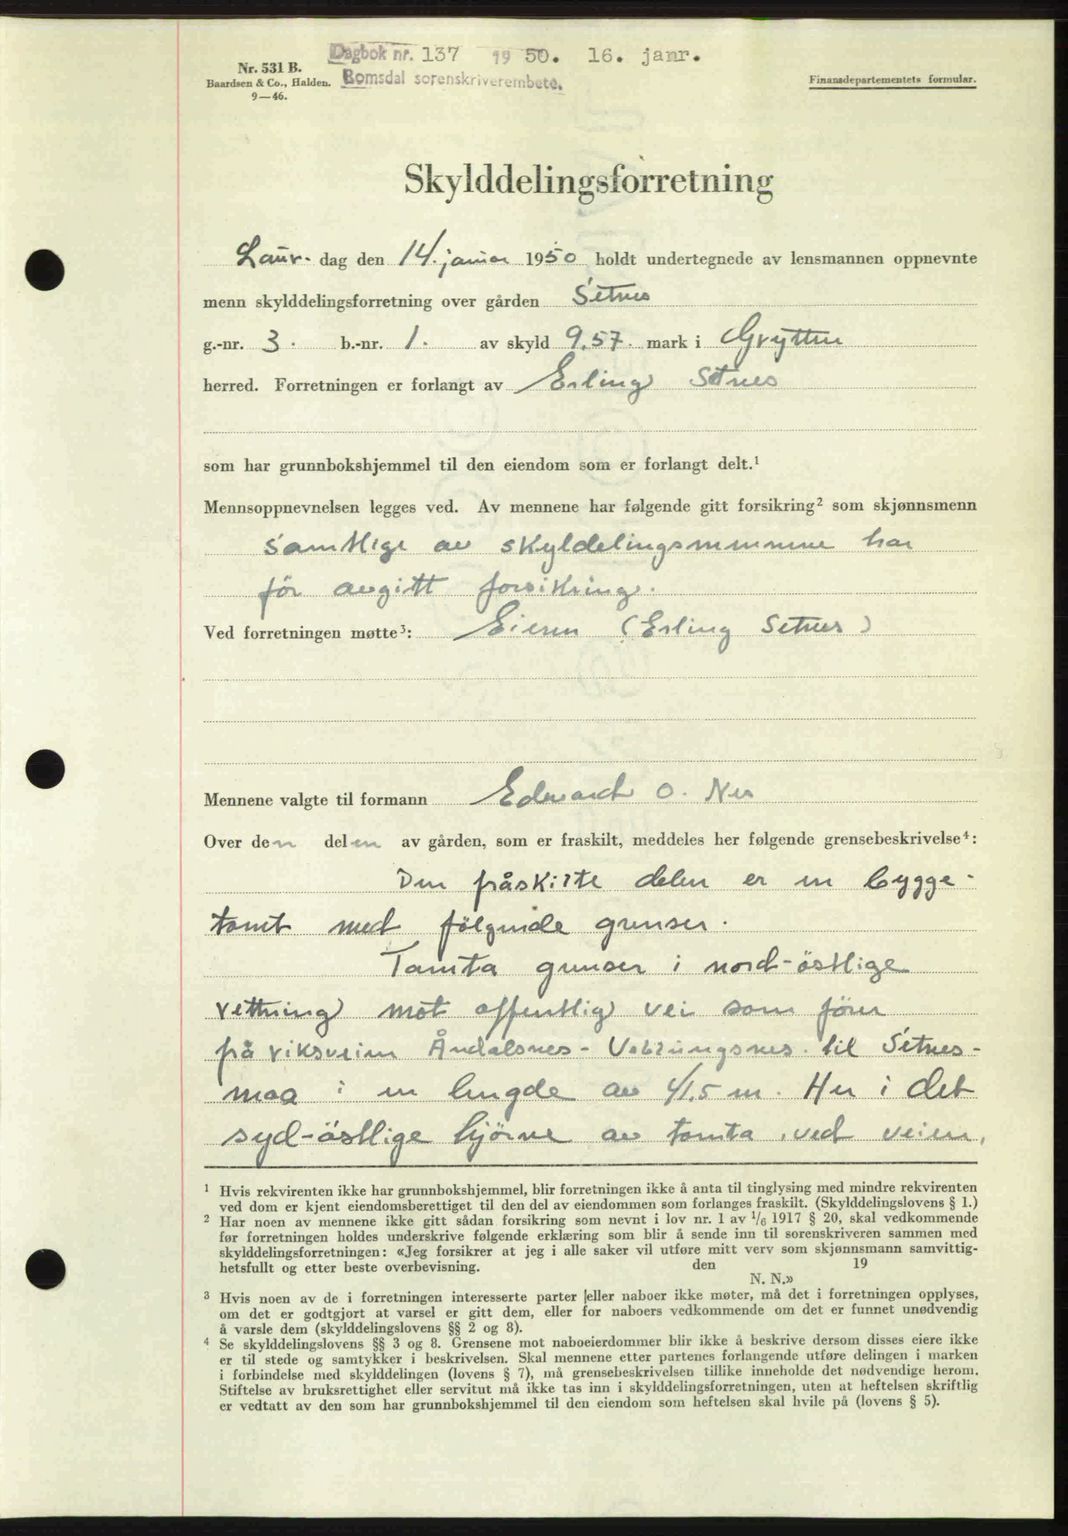 Dagbok nr. 137 1950. 16. janr.
Romsdal sorenskriverembete.
Nr. 531 B.
Baardsen & Co., Halden.
9—46.
Finansdepartementets formular.
Skylddelingsforretning
Laur- dag den 14. januar 1950 holdt undertegnede av lensmannen oppnevnte
menn skylddelingsforretning over gården Setnes
g.-nr. 3. b.-nr. 1. av skyld 9.57. mark i Grytten
herred. Forretningen er forlangt av Erling Setnes
som har grunnbokshjemmel til den eiendom som er forlangt delt.¹
Mennsoppnevnelsen legges ved. Av mennene har følgende gitt forsikring² som skjønnsmenn
Samtlige av skyldelingsmennene har
før avgitt forsikring.
Ved forretningen møtte³: Eieren (Erling Setnes)
Mennene valgte til formann Edward O. Nes
Over den delen av gården, som er fraskilt, meddeles her følgende grensebeskrivelse⁴:
Den fråskilte delen er en bygge-
tomt med følgende grenser.
Tomta grenser i nord-østlige
rettning mot offentlig vei som fører
frå riksveien Åndalsnes - Veblungsnes til Setnes-
moa i en lengde av 41.5 m. Her i det
syd-østlige hjørne av tomta, ved veien,
¹ Hvis rekvirenten ikke har grunnbokshjemmel, blir forretningen ikke å anta til tinglysing med mindre rekvirenten
ved dom er kjent eiendomsberettiget til den del av eiendommen som forlanges fraskilt. (Skylddelingslovens § 1.)
² Har noen av mennene ikke gitt sådan forsikring som nevnt i lov nr. 1 av 1/6 1917 § 20, skal vedkommende
før forretningen holdes underskrive følgende erklæring som blir å sende inn til sorenskriveren sammen med
skylddelingsforretningen: «Jeg forsikrer at jeg i alle saker vil utføre mitt verv som skjønnsmann samvittig-
hetsfullt og etter beste overbevisning. den 19
N. N.»
³ Hvis noen av de i forretningen interesserte parter eller naboer ikke møter, må det i forretningen opplyses,
om det er godtgjort at varsel er gitt dem, eller for naboers vedkommende om det er funnet unødvendig
å varsle dem (skylddelingslovens §§ 2 og 8).
⁴ Se skylddelingslovens §§ 3 og 8. Grensene mot naboeierdommer blir ikke å beskrive dersom disses eiere ikke
er til stede og samtykker i beskrivelsen. Skal mennene etter partenes forlangende utføre delingen i marken
i forbindelse med skylddelingen (lovens § 7), må grensebeskrivelsen tillike inneholde det nødvendige herom.
Stiftelse av bruksrettighet eller servitut må ikke tas inn i skylddelingsforretningen, uten at heftelsen skriftlig
er vedtatt av den som har grunnbokshjemmel til den eiendom som heftelsen skal hvile på (lovens § 5).